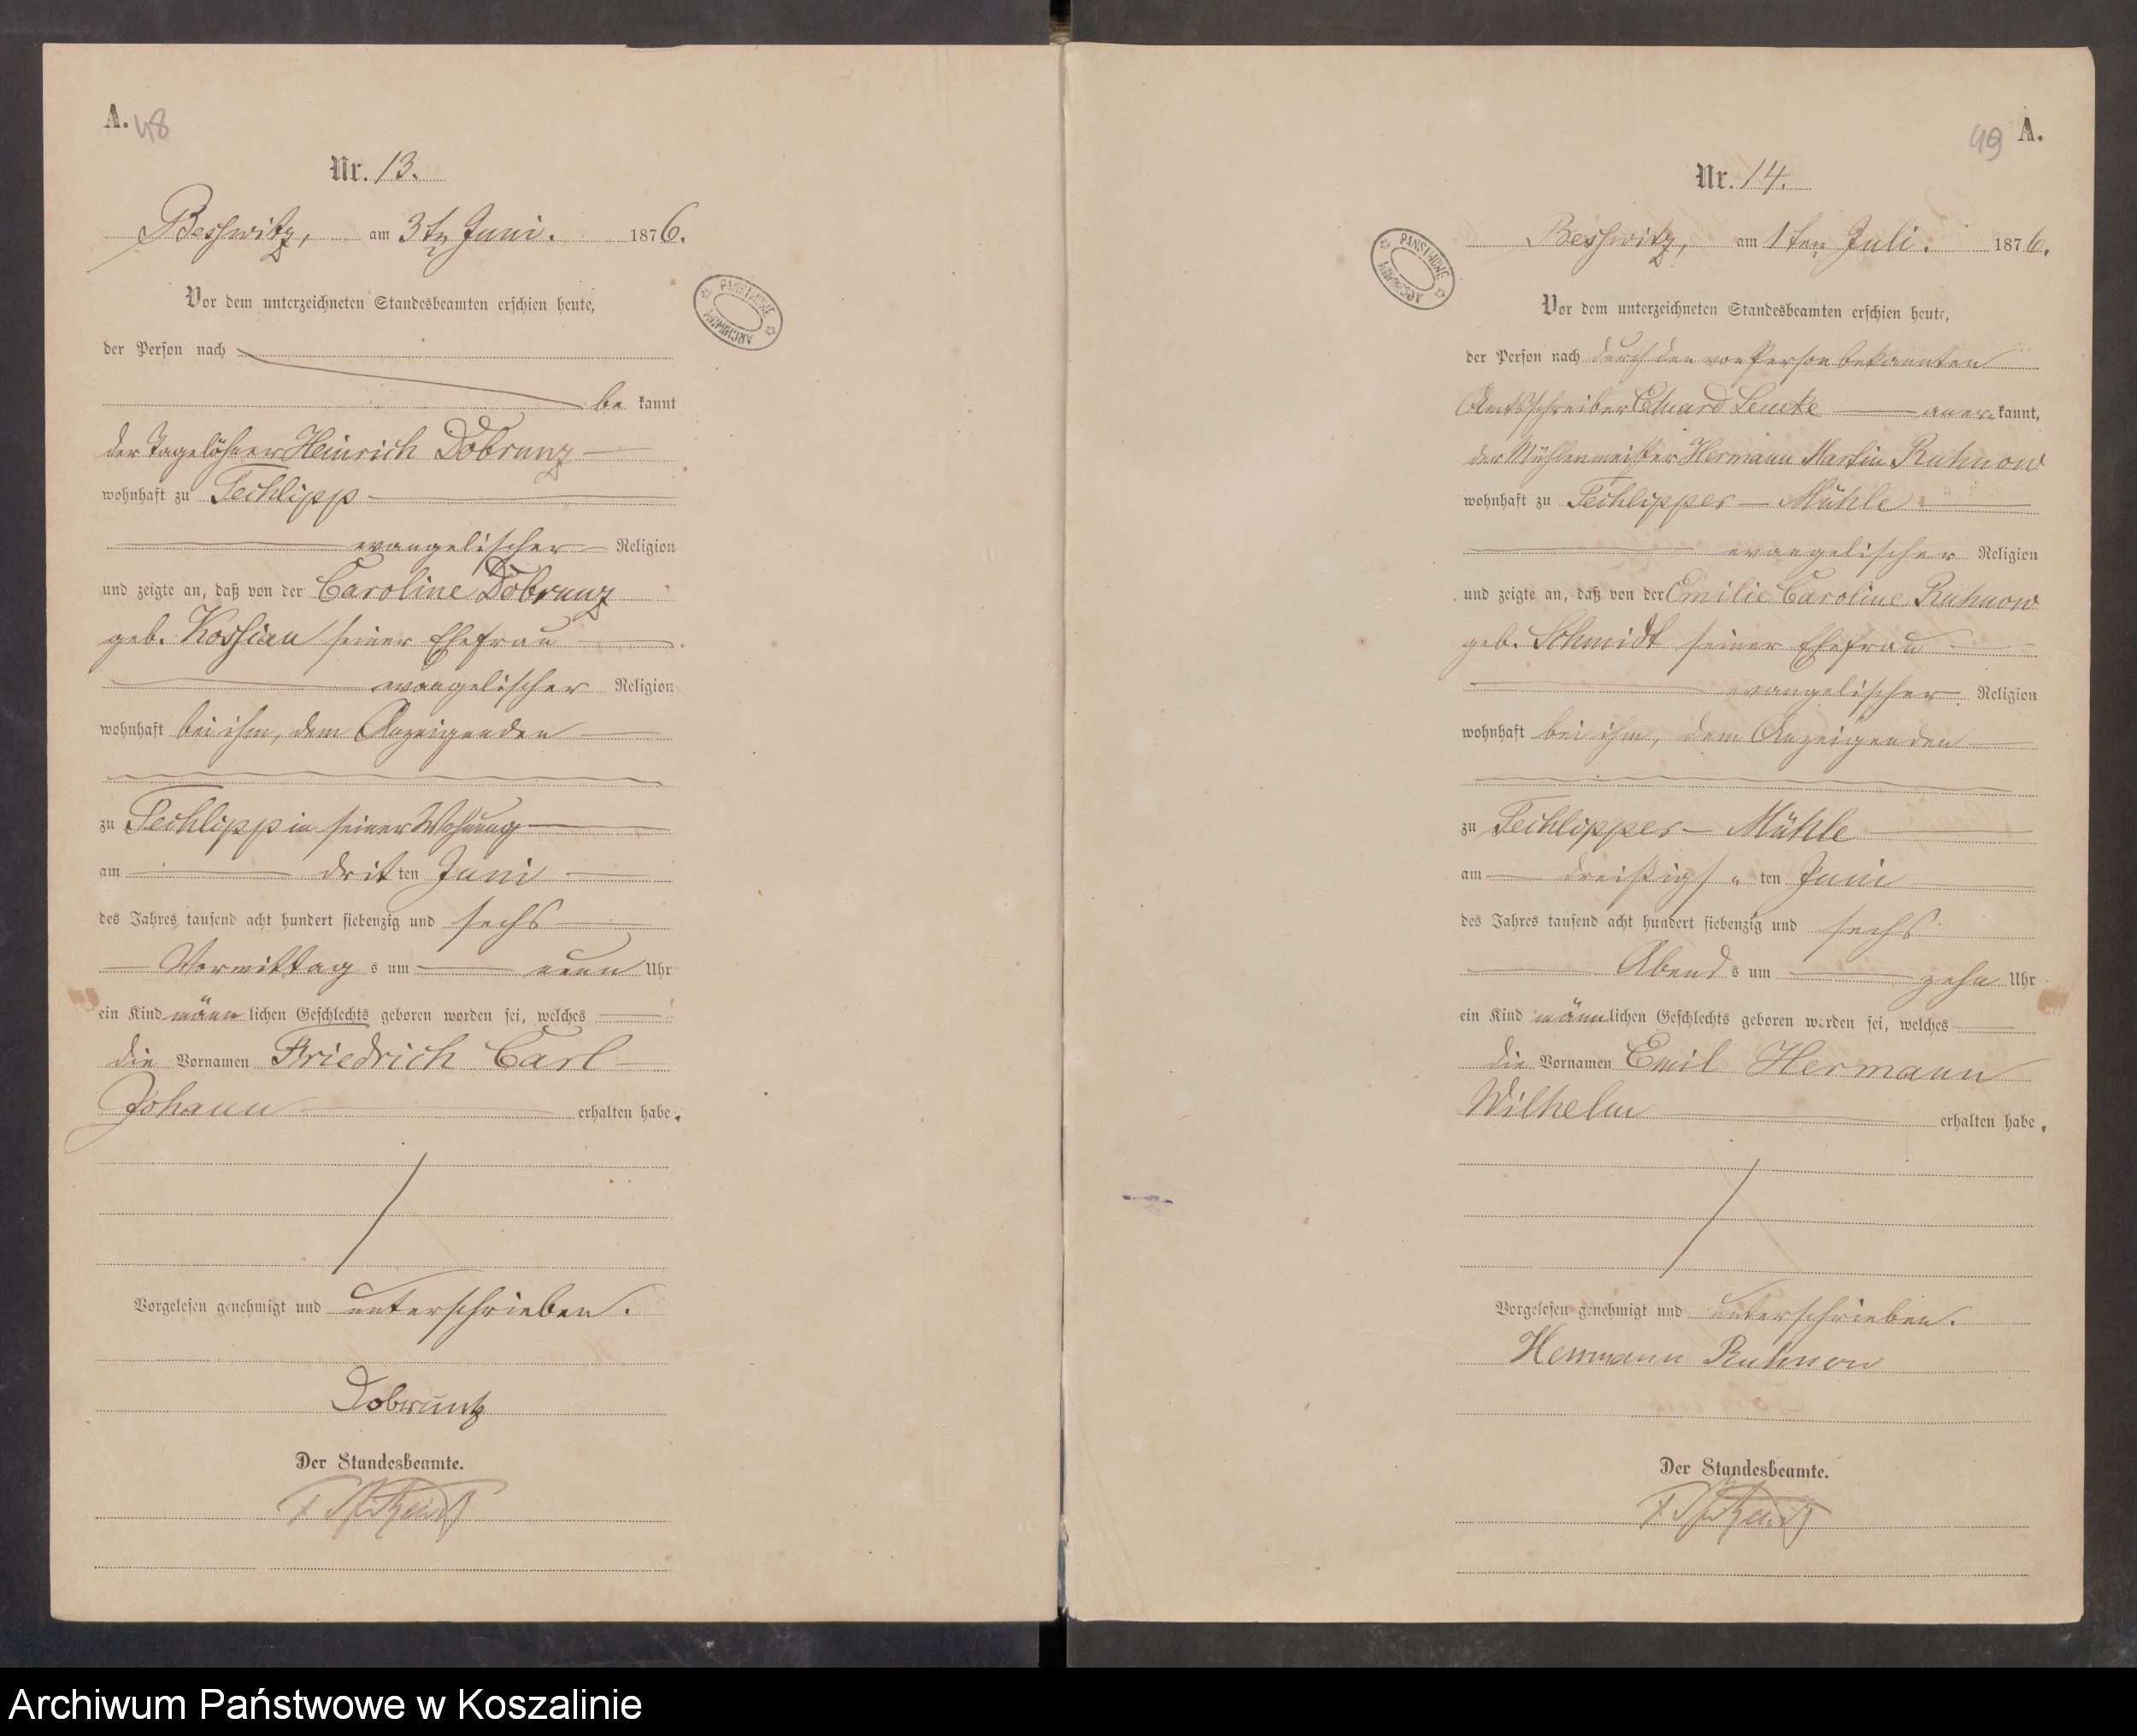 A. 48
Nr. 13.
Beßwitz, am 3ten Juni. 1876.
Vor dem unterzeichneten Standesbeamten erschien heute,
der Person nach
be kannt
der Tagelöhner Heinrich Dobrunz
wohnhaft zu Techlipp
evangelischer Religion
und zeigte an, daß von der Caroline Dobrunz
geb. Kossian seiner Ehefrau
evangelischer Religion
wohnhaft bei ihm, dem Anzeigenden
zu Techlipp in seiner Wohnung
am dritten Juni
des Jahres tausend acht hundert siebenzig und sechs
Vormittags um neun Uhr
ein Kind männlichen Geschlechts geboren worden sei, welches
die Vornamen Friedrich Carl
Johann erhalten habe.
Vorgelesen genehmigt und unterschrieben.
Dobruntz
Der Standesbeamte.
PANSTWOWE ARCHIWUM
49 A.
Nr. 14.
Beßwitz, am 1ten Juli. 1876.
Vor dem unterzeichneten Standesbeamten erschien heute,
der Person nach durch den von Person bekannten
Amtsschreiber Eduard Lemke anerkannt,
der Mühlenmeister Hermann Martin Ruhnow
wohnhaft zu Techlipper-Mühle
evangelischer Religion
und zeigte an, daß von der Emilie Caroline Ruhnow
geb. Schmidt seiner Ehefrau
evangelischer Religion
wohnhaft bei ihm, dem Anzeigenden
zu Techlipper-Mühle
am dreißigsten Juni
des Jahres tausend acht hundert siebenzig und sechs
Abends um zehn Uhr
ein Kind männlichen Geschlechts geboren worden sei, welches
die Vornamen Emil Hermann
Wilhelm erhalten habe.
Vorgelesen genehmigt und unterschrieben.
Hermann Ruhnow
Der Standesbeamte.
PANSTWOWE ARCHIWUM
Archiwum Państwowe w Koszalinie